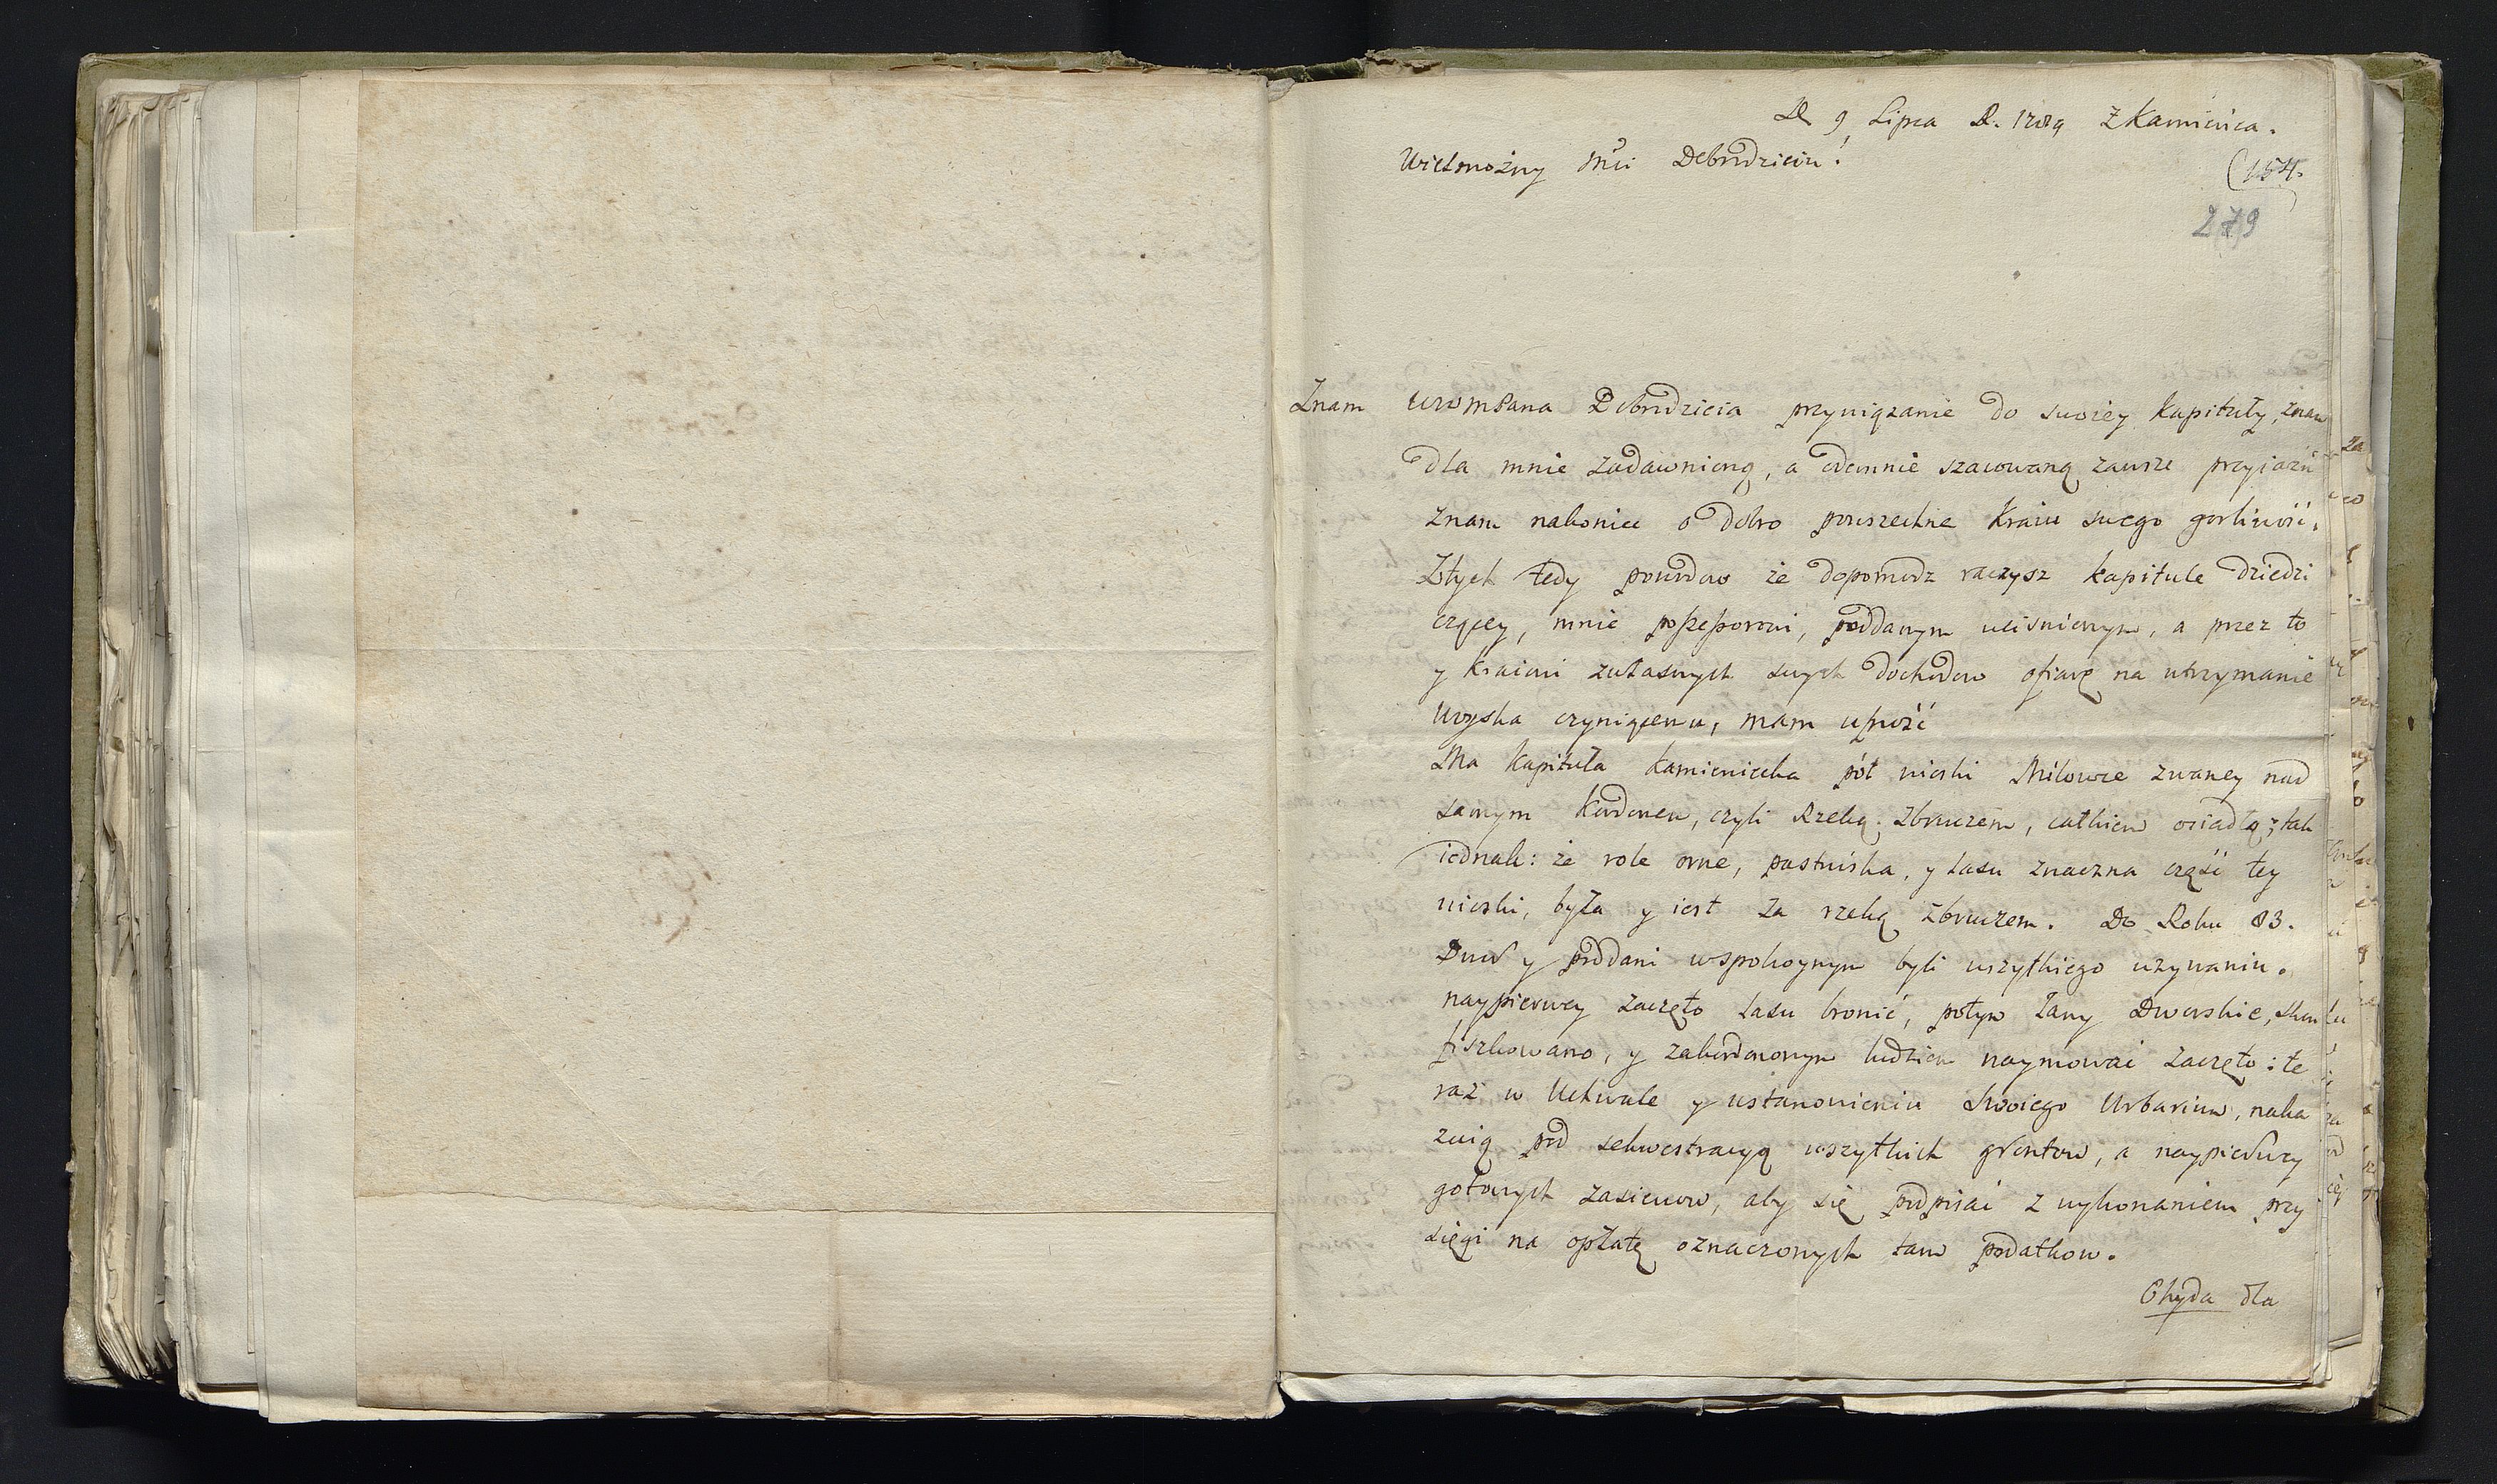 D 9 Lipca R. 1789 z Kamieńca.
Wielmożny Mći Dobrodzieiu!
(154.
279
Znam WWMPana Dobrodzieia przywiązanie do swoiey Kapituły, znam
dla mnie zadawnioną, a odemnie szacowaną zawsze przyiaźń
znam nakoniec o dobro powszechne Kraiu swego gorliwość.
Z tych tedy powodow że dopomodz raczysz kapitule dziedzi
czącey, mnie possessorowi, poddanym uciśnionym, a przez to
y kraiowi z własnych swych dochodow ofiarę na utrzymanie
woyska czyniącemu, mam ufność
Ma Kapituła Kamieniecka pół wioski Milowce zwaney nad
samym Kordonem, czyli Rzeką Zbruczem, całkiem osiadłą; tak
iednak: że role orne, pastwiska, y lasu znaczna część tey
wioski, była y iest za rzeką Zbruczem. Do Roku 83.
Dwor y poddani w spokoynym byli wszytkiego używaniu.
naypierwey zaczęto lasu bronić, potym łany Dworskie, skon
fiszkowano, y zakordonowym ludziom naymować zaczęto: te
raz w Uchwale y ustanowieniu swoiego Urbarium, naka
zuią pod sekwestracyą wszytkich gruntow, a naypierwey
gotowych zasiewow, aby się podpisać z wykonaniem przy
sięgi na opłatę oznaczonych tam podatkow.
Ohyda dla